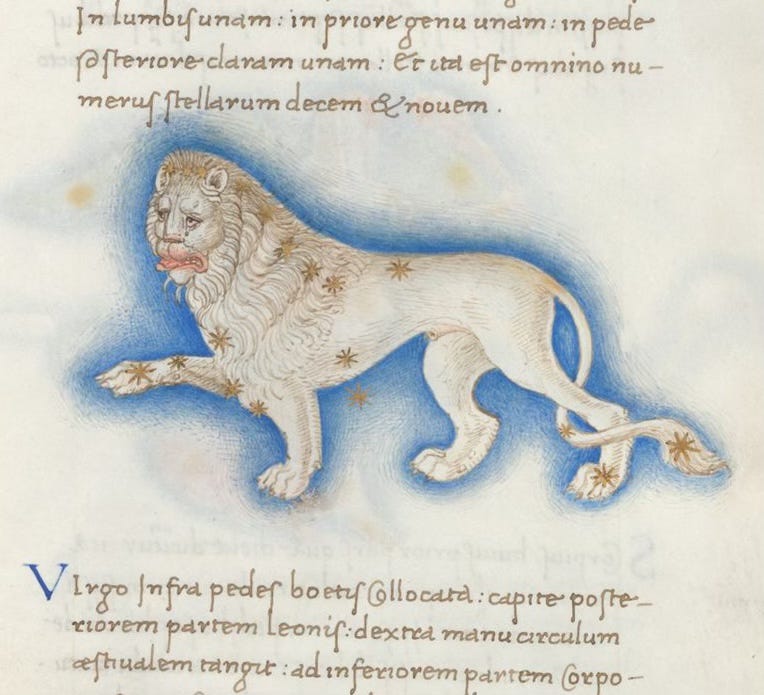 In lumbis unam: in priore genu unam: in pede
posteriore claram unam: Et ita est omnino nu-
merus stellarum decem & novem.
VIrgo Infra pedes boetis Collocata: capite poste-
riorem partem leonis: dextra manu circulum
æstivalem tangit: ad inferiorem partem Corpo-